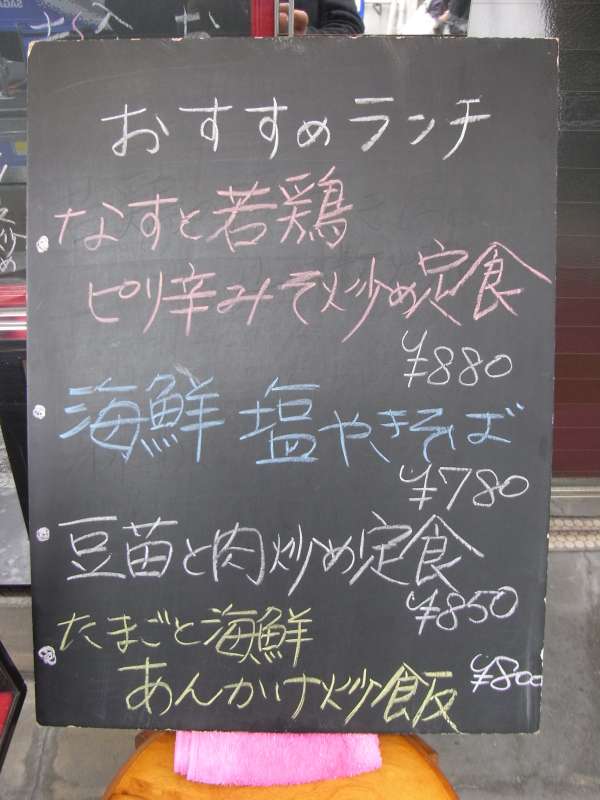 おすすめランチ
なすと若鶏
ピリ辛みそ炒め定食
¥880
海鮮 塩やきそば
¥780
豆苗と肉炒め定食
¥850
たまごと海鮮
あんかけ炒飯 ¥800